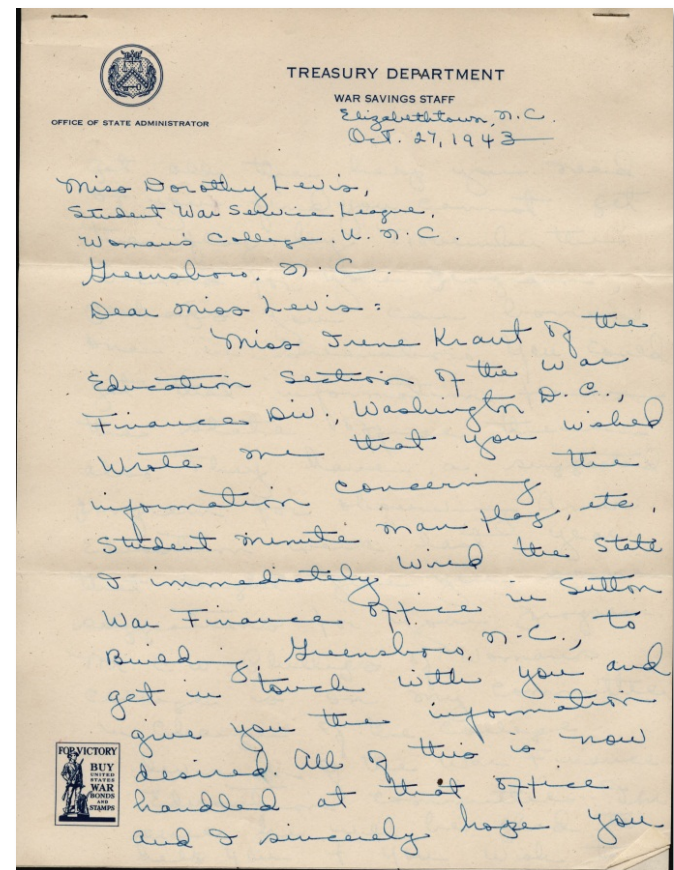 TREASURY DEPARTMENT
WAR SAVINGS STAFF
OFFICE OF STATE ADMINISTRATOR
Elizabethtown, N.C.
Oct. 27, 1943
Miss Dorothy Levis,
Student War Service League,
Woman's College, U. N. C.
Greensboro, N. C.
Dear Miss Levis:
Miss Irene Kraut of the
Education Section of the War
Finance Div., Washington D. C.,
wrote me that you wished
information concerning the
Student Minute Man flag, etc.
I immediately wired the State
War Finance Office in Sutton
Building, Greensboro, N.C., to
get in touch with you and
give you the information
desired. All of this is now
handled at that office
and I sincerely hope you
FOR VICTORY
BUY
UNITED
STATES
WAR
BONDS
AND
STAMPS